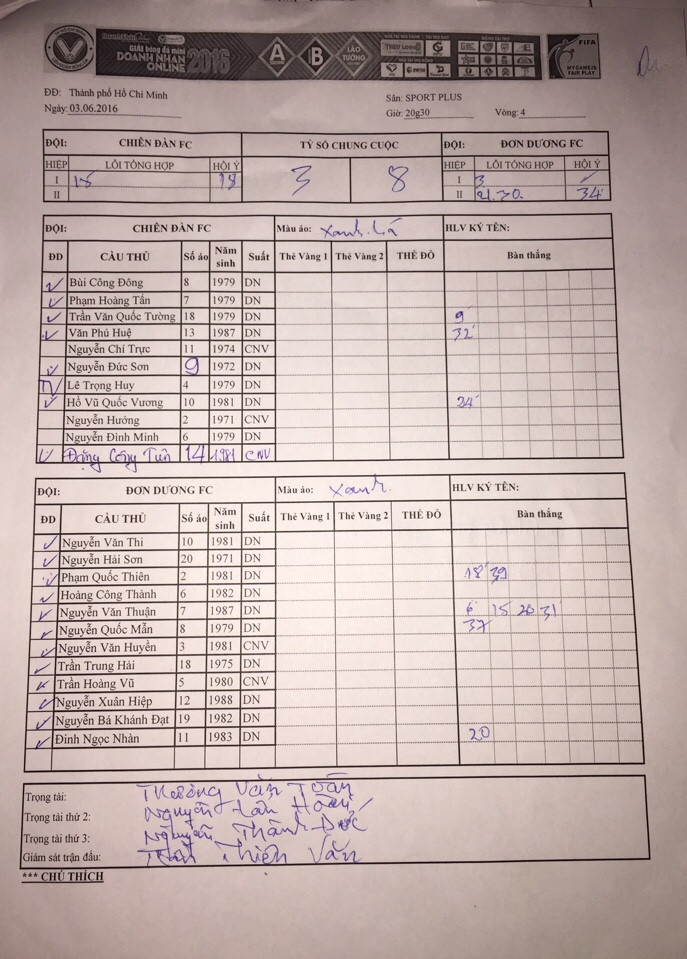 GIẢI bóng đá mini
DOANH NHÂN
ONLINE 2016
A B LÀO TƯỜNG
FIFA
MY GAME IS
FAIR PLAY
ĐĐ: Thành phố Hồ Chí Minh
Sân: SPORT PLUS
Ngày: 03.06.2016
Giờ: 20g30 Vòng: 4
ĐỘI: CHIẾN ĐÀN FC TỶ SỐ CHUNG CUỘC ĐỘI: ĐƠN DƯƠNG FC
HIỆP LỖI TỔNG HỢP HỘI Ý 3 8 HIỆP LỖI TỔNG HỢP HỘI Ý
I 15 18 I 3
II II 21. 30. 34
ĐỘI: CHIẾN ĐÀN FC Màu áo: Xanh lá HLV KÝ TÊN:
ĐD CẦU THỦ Số áo Năm sinh Suất Thẻ Vàng 1 Thẻ Vàng 2 THẺ ĐỎ Bàn thắng
Bùi Công Đông 8 1979 DN
Phạm Hoàng Tấn 7 1979 DN
Trần Văn Quốc Tường 18 1979 DN 9'
Văn Phú Huệ 13 1987 DN 32'
Nguyễn Chí Trực 11 1974 CNV
Nguyễn Đức Sơn 9 1972 DN
Lê Trọng Huy 4 1979 DN
Hồ Vũ Quốc Vương 10 1981 DN 24'
Nguyễn Hướng 2 1971 CNV
Nguyễn Đình Minh 6 1979 DN
Đặng Công Tuấn 14 1981 CNV
ĐỘI: ĐƠN DƯƠNG FC Màu áo: Xanh. HLV KÝ TÊN:
ĐD CẦU THỦ Số áo Năm sinh Suất Thẻ Vàng 1 Thẻ Vàng 2 THẺ ĐỎ Bàn thắng
Nguyễn Văn Thi 10 1981 DN
Nguyễn Hải Sơn 20 1971 DN
Phạm Quốc Thiên 2 1981 DN 18' 39
Hoàng Công Thành 6 1982 DN
Nguyễn Văn Thuận 7 1987 DN 6 15 20 31
Nguyễn Quốc Mẫn 8 1979 DN 37
Nguyễn Văn Huyền 3 1981 CNV
Trần Trung Hải 18 1975 DN
Trần Hoàng Vũ 5 1980 CNV
Nguyễn Xuân Hiệp 12 1988 DN
Nguyễn Bá Khánh Đạt 19 1982 DN
Đinh Ngọc Nhàn 11 1983 DN 20
Trọng tài: Trương Văn Toản
Trọng tài thứ 2: Nguyễn
Trọng tài thứ 3: Nguyễn Thành Đức
Giám sát trận đấu: Trần Thiện Văn
*** CHÚ THÍCH